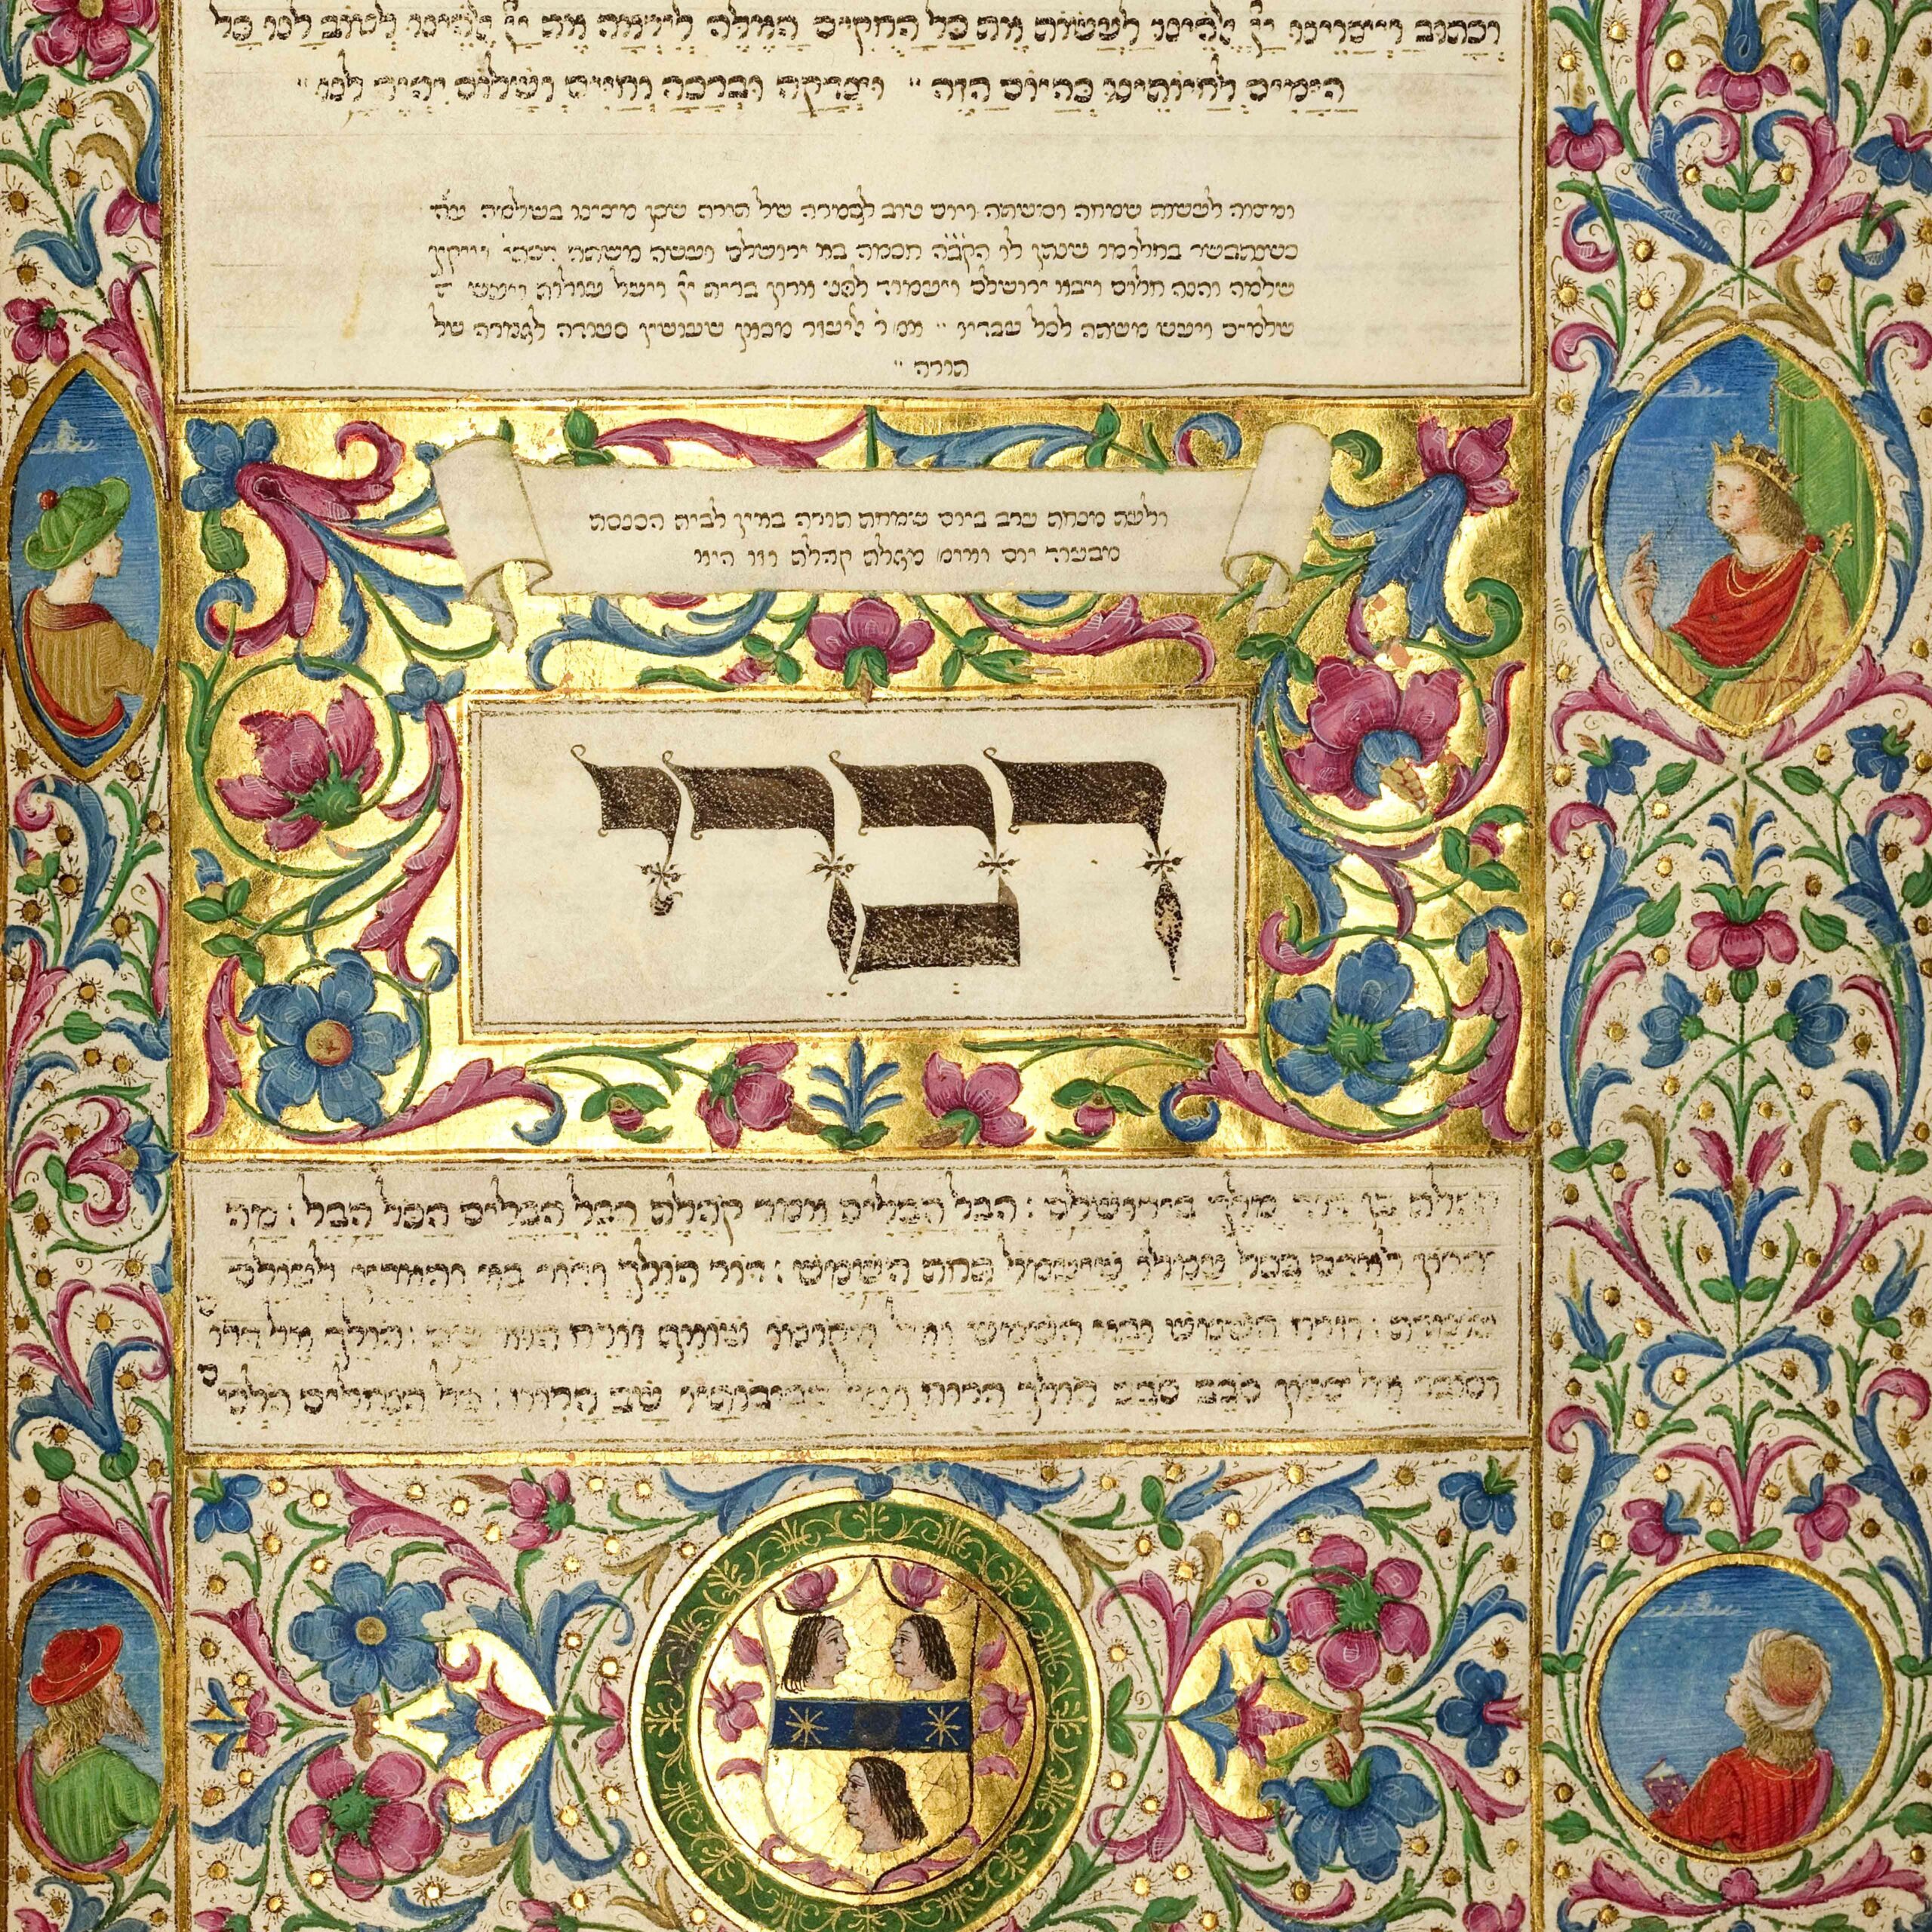 וכתוב ויצוינו יי אלהינו לעשות את כל החקים האלה ליראה את יי אלהינו לטוב לנו כל
הימים לחיותינו כהיום הזה וצדקה וברכה וחיים ושלום יהיה לנו
ומצוה לעשות שמחה ומשתה ויום טוב לגמירה של תורה שכן מצינו בשלמה ע״ה
כשנתבשר בחלומו שנתן לו הקב״ה חכמה בא ירושלם ועשה משתה ויקץ
שלמה והנה חלום ויבוא ירושלם ויעמוד לפני ארון ברית יי ויעל עולות ויעש
שלמים ויעש משתה לכל עבדיו וא״ר ליעזר מכאן שעושין סעודה לגמרה של
תורה
ולעת מנחת ערב ביום שמחת תורה באין לבית הכנסת
מבעוד יום מגלת קהלת וזו היא
דברי
קהלת בן דוד מלך בירושלם : הבל הבלים אמר קהלת הבל הבלים הכל הבל : מה
יתרון לאדם בכל עמלו שיעמל תחת השמש : דור הולך ודור בא והארץ לעולם
עומדת : וזרח השמש ובא השמש ואל מקומו שואף זורח הוא שם : הולך אל דרום
וסובב אל צפון סבב סבב הולך הרוח ועל סביבותיו שב הרוח : כל הנחלים הלכים